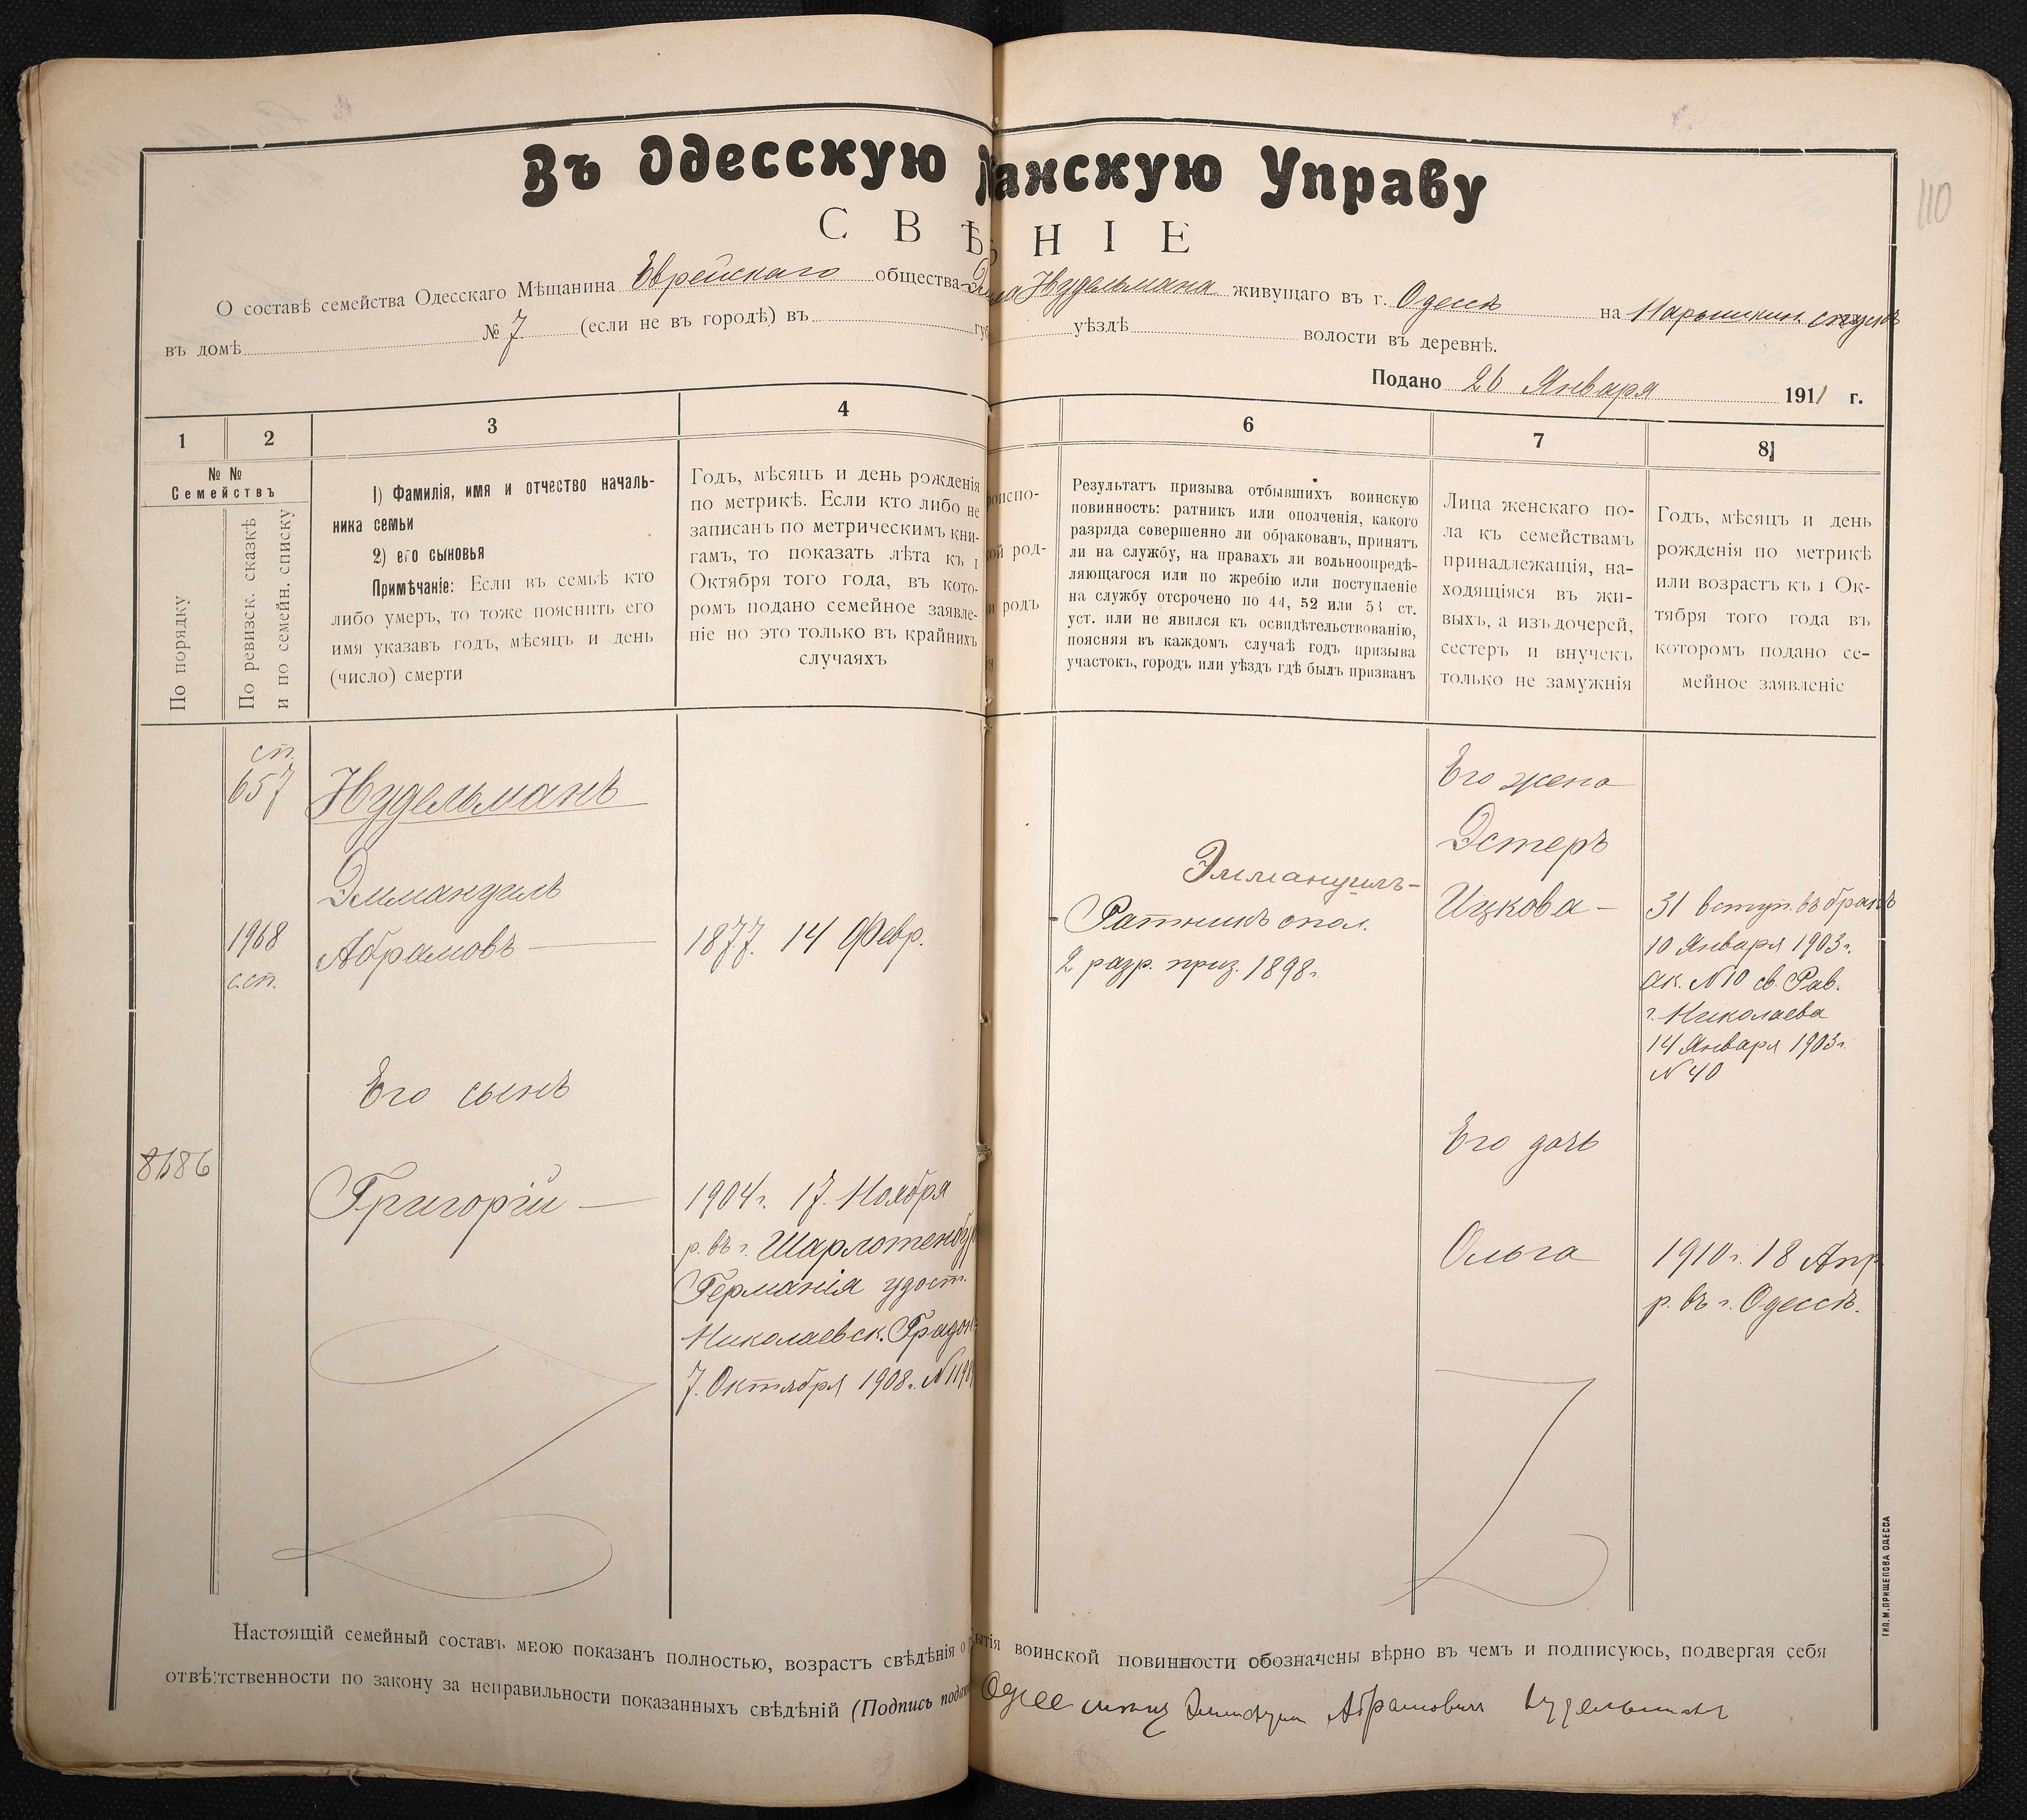 Въ Одесскую анскую Управу
СВѢ НІЕ
О составѣ семейства Одесскаго Мѣщанина Еврейскаго общества Нудельмана живущаго въ г. Одессѣ на Нарышкин. спускѣ
въ домѣ № 7 (если не въ городѣ) въ уѣздѣ волости въ деревнѣ.
Подано 26 Января 1911 г.
110
1 2 3 4 6 7 8
№ №
Семействъ
По порядку
По ревизск. сказкѣ
и по семейн. списку
1) Фамилія, имя и отчество началь-
ника семьи
2) его сыновья
Примѣчаніе: Если въ семьѣ кто
либо умеръ, то тоже пояснить его
имя указавъ годъ, мѣсяцъ и день
(число) смерти
Годъ, мѣсяцъ и день рожденія
по метрикѣ. Если кто либо не
записанъ по метрическимъ кни-
гамъ, то показать лѣта къ 1
Октября того года, въ кото-
ромъ подано семейное заявле-
ніе но это только въ крайнихъ
случаяхъ
роиспо-
кой род-
и родъ
Результатъ призыва отбывшихъ воинскую
повинность: ратник или ополченія, какого
разряда совершенно ли обракован, принятъ
ли на службу, на правахъ ли вольноопредѣ-
ляющагося или по жребію или поступленіе
на службу отсрочено по 44, 52 или 53 ст.
уст. или не явился къ освидѣтельствованію,
поясняя въ каждомъ случаѣ годъ призыва
участокъ, городъ или уѣздъ гдѣ былъ призванъ
Лица женскаго по-
ла къ семействамъ
принадлежащія, на-
ходящіяся въ жи-
выхъ, а изъ дочерей,
сестеръ и внучекъ
только не замужнія
Годъ, мѣсяцъ и день
рожденія по метрикѣ
или возрастъ къ 1 Ок-
тября того года въ
которомъ подано се-
мейное заявленіе
сп.
657
Нудельманъ
Эммануилъ
1968
с.сп.
Абрамовъ —
1877. 14 Февр.
Его сынъ
8686
Григорій —
1904 г. 17 Ноября
р. въ г. Шарлотенбур
Германія удост.
Николаевск. Градон
7. Октября 1908 г. №
Эммануилъ-
- Ратникъ опол.
2 разр. приз. 1898 г.
Его жена
Эстеръ
Ицкова —
31 вступ. въ бракъ
10 Января 1903 г.
ак. № 10 св. Рав.
г. Николаева
14 Января 1903 г.
№ 40
Его дочь
Ольга
1910 г. 18 Апр.
р. въ г. Одессѣ.
Настоящій семейный составъ мною показанъ полностью, возрастъ свѣдѣнія о бытія воинской повинности обозначены вѣрно въ чемъ и подписуюсь, подвергая себя
отвѣтственности по закону за неправильности показанныхъ свѣдѣній (Подпись Одес мѣщ Эммануил Абрамович Нудельман
ТИП. М. ПРИЩЕПОВА ОДЕССА